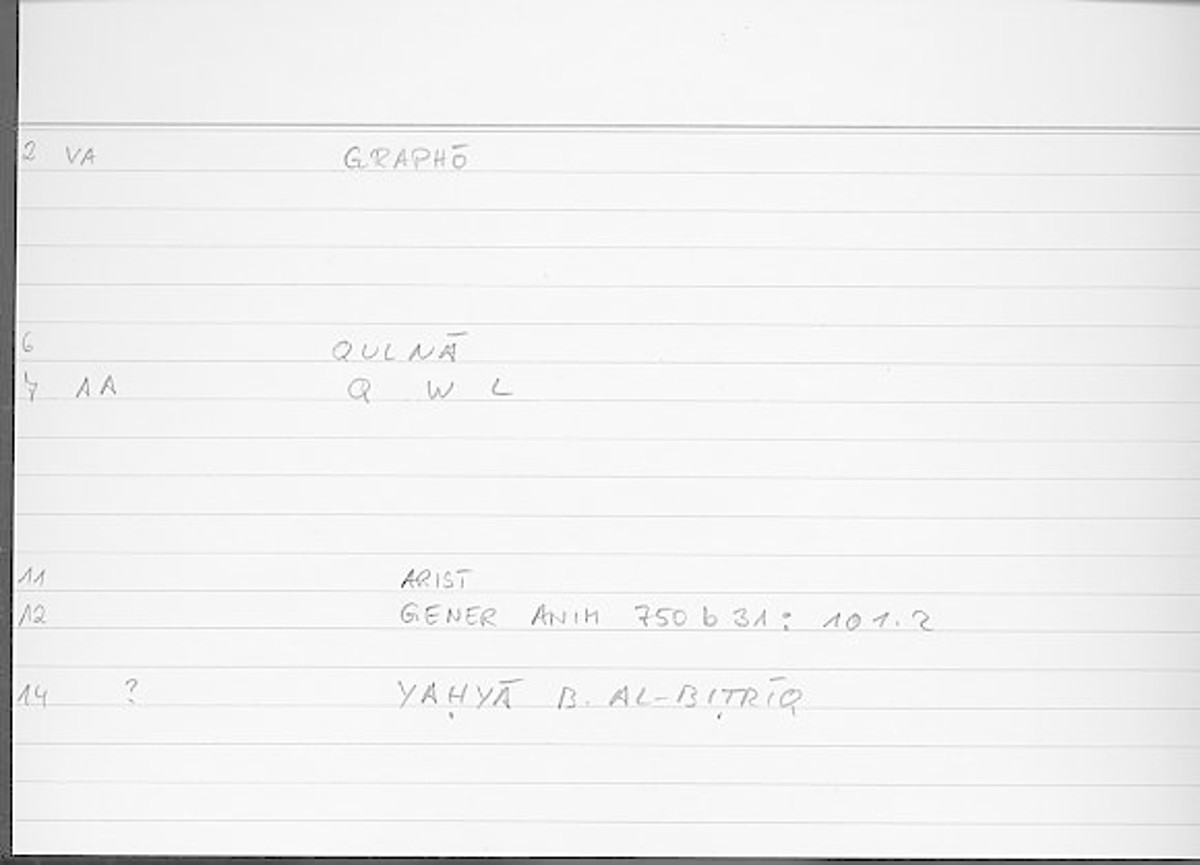 2 VA GRAPHŌ
6 QULNĀ
7 AA Q W L
11 ARIST
12 GENER ANIM 750 b 31: 101.2
14 ? YAḤYĀ B. AL-BIṬRĪQ